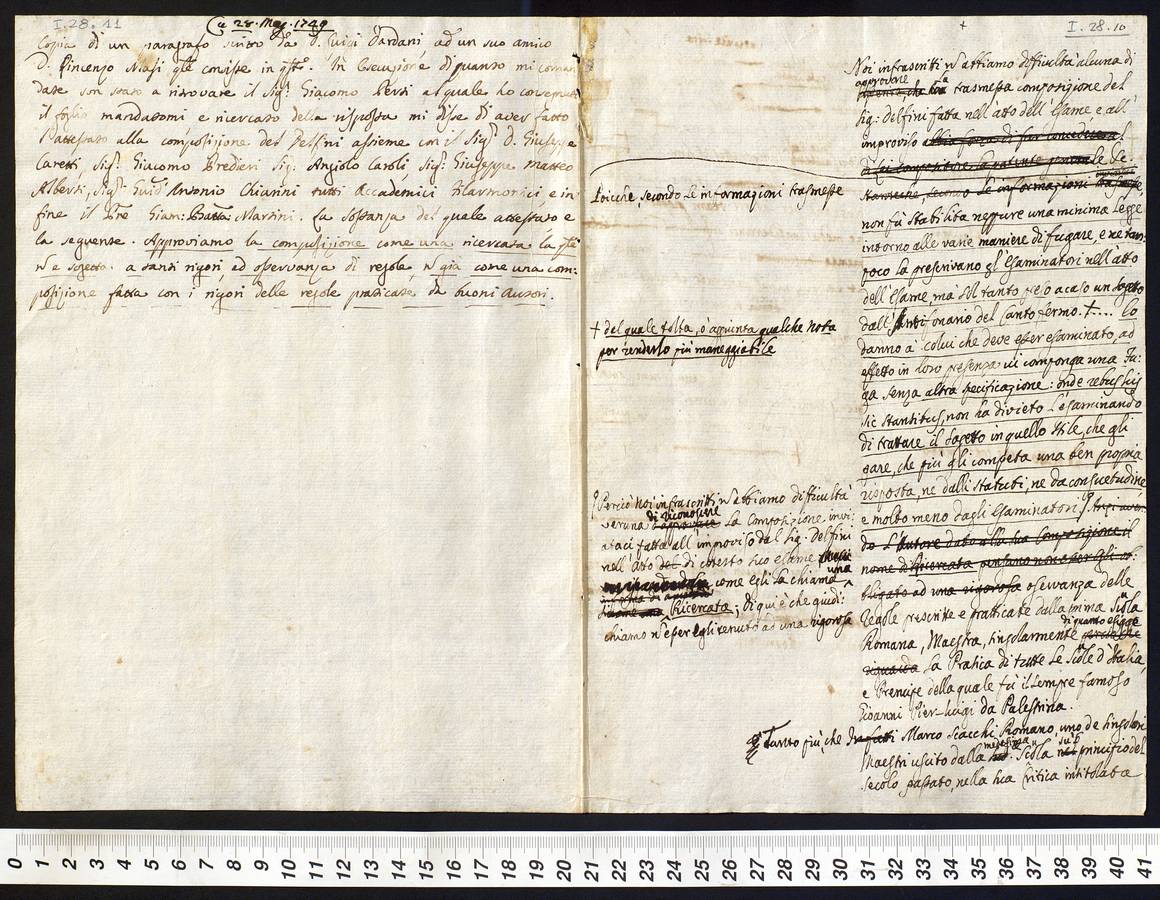 I.28.11
Ca 28. Mag. 1749
Copia di un paragrafo scritto da D. Luigi Dardani, ad un suo amico
D. Vincenzo Masi qle consiste in qsto. In esecuzione di quanto mi coman
date son stato a ritrovare il Sigr Giacomo Perti al quale ho consegnato
il foglio mandatomi e ricercato della risposta mi disse di aver fatto
l'attestato alla composizione del Delfini assieme con il Sigr D. Giuseppe
Caretti, Sigr Giacomo Predieri Sig: Angiolo Caroli, Sigr Giuseppe Matteo
Alberti, Sigr Guid' Antonio Chiarini tutti Accademici Filarmonici, e in
fine il Pre Giam: Batta Martini. La sostanza del quale attestato e
la seguente. Approviamo la composizione come una ricercata la qle
n e sogetto a tanti rigori ed osservanza di regole n già come una com:
posizione fatta con i rigori delle regole praticate da buoni Autori.
I. 28. 10
+
Noi infrascritti n abbiamo difficultà alcuna di
approvare
la trasmessa composizione del
Sig: Delfini fatta nell'atto dell'Esame e all'
improviso
Poicche, secondo le informazioni trasmesse
non fù stabilita neppure una minima Legge
intorno alle varie maniere di fugare, e ne tan:
poco la prescrivano gl'Esaminatori nell'atto
dell'Esame, mà sol tanto preso a caso un sogetto
dall'Antifonario del Canto fermo + .... lo
+ del quale tolta, ò aggiunta qualche nota
per renderlo più maneggiabile
danno a colui che deve esser esaminato, ad
effetto in loro presenza vi componga una Fu:
ga senza altra specificazione: onde rebus sic
sic stantibus, non ha divieto l'esaminando
di trattare il sogetto in quello stile, che gli
pare, che più gli competa una ben propria
risposta, ne dalli statuti, ne da consuetudine
e molto meno dagli Esaminatori
Perciò Noi infrascritti n abbiamo difficultà
veruna di riconoscere la Composizione invi:
ataci fatta all'improviso dal Sig. Delfini
nell'atto di cotesto suo esame
una
come egli la chiama
Ricercata; di qui è che giudi:
chiamo n esser egli tenuto ad una rigorosa
osservanza delle
Regole prescritte e pratticate dalla prima Scuola
Romana, Maestra, singolarmente di quanto esigge
la Pratica di tutte le Scuole d'Italia,
e Prencipe della quale fù il sempre famoso
Gioanni Pier-luigi da Palestrina.
Tanto più, che Marco Scacchi Romano, uno de singolari
Maestri uscito dalla medesima Scuola sul principio del
secolo passato, nella sua Critica intitolata
0 1 2 3 4 5 6 7 8 9 10 11 12 13 14 15 16 17 18 19 20 21 22 23 24 25 26 27 28 29 30 31 32 33 34 35 36 37 38 39 40 41